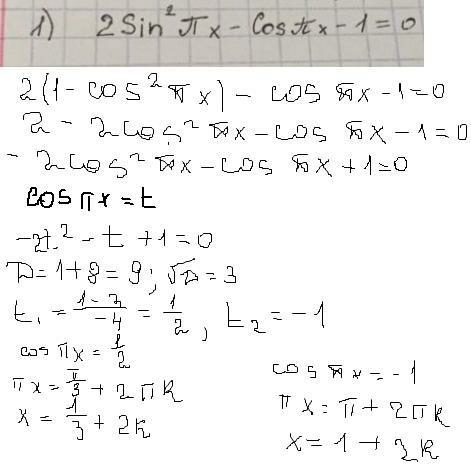 1) 2Sin² πx - Cosπx - 1 = 0
2(1 - cos² πx) - cos πx - 1 = 0
2 - 2cos² πx - cos πx - 1 = 0
- 2cos² πx - cos πx + 1 = 0
cos πx = t
-2t² - t + 1 = 0
D = 1 + 8 = 9; √D = 3
t₁ = (1 - 3)/(-4) = 1/2, t₂ = -1
cos πx = 1/2
πx = π/3 + 2πk
x = 1/3 + 2k
cos πx = -1
πx = π + 2πk
x = 1 + 2k